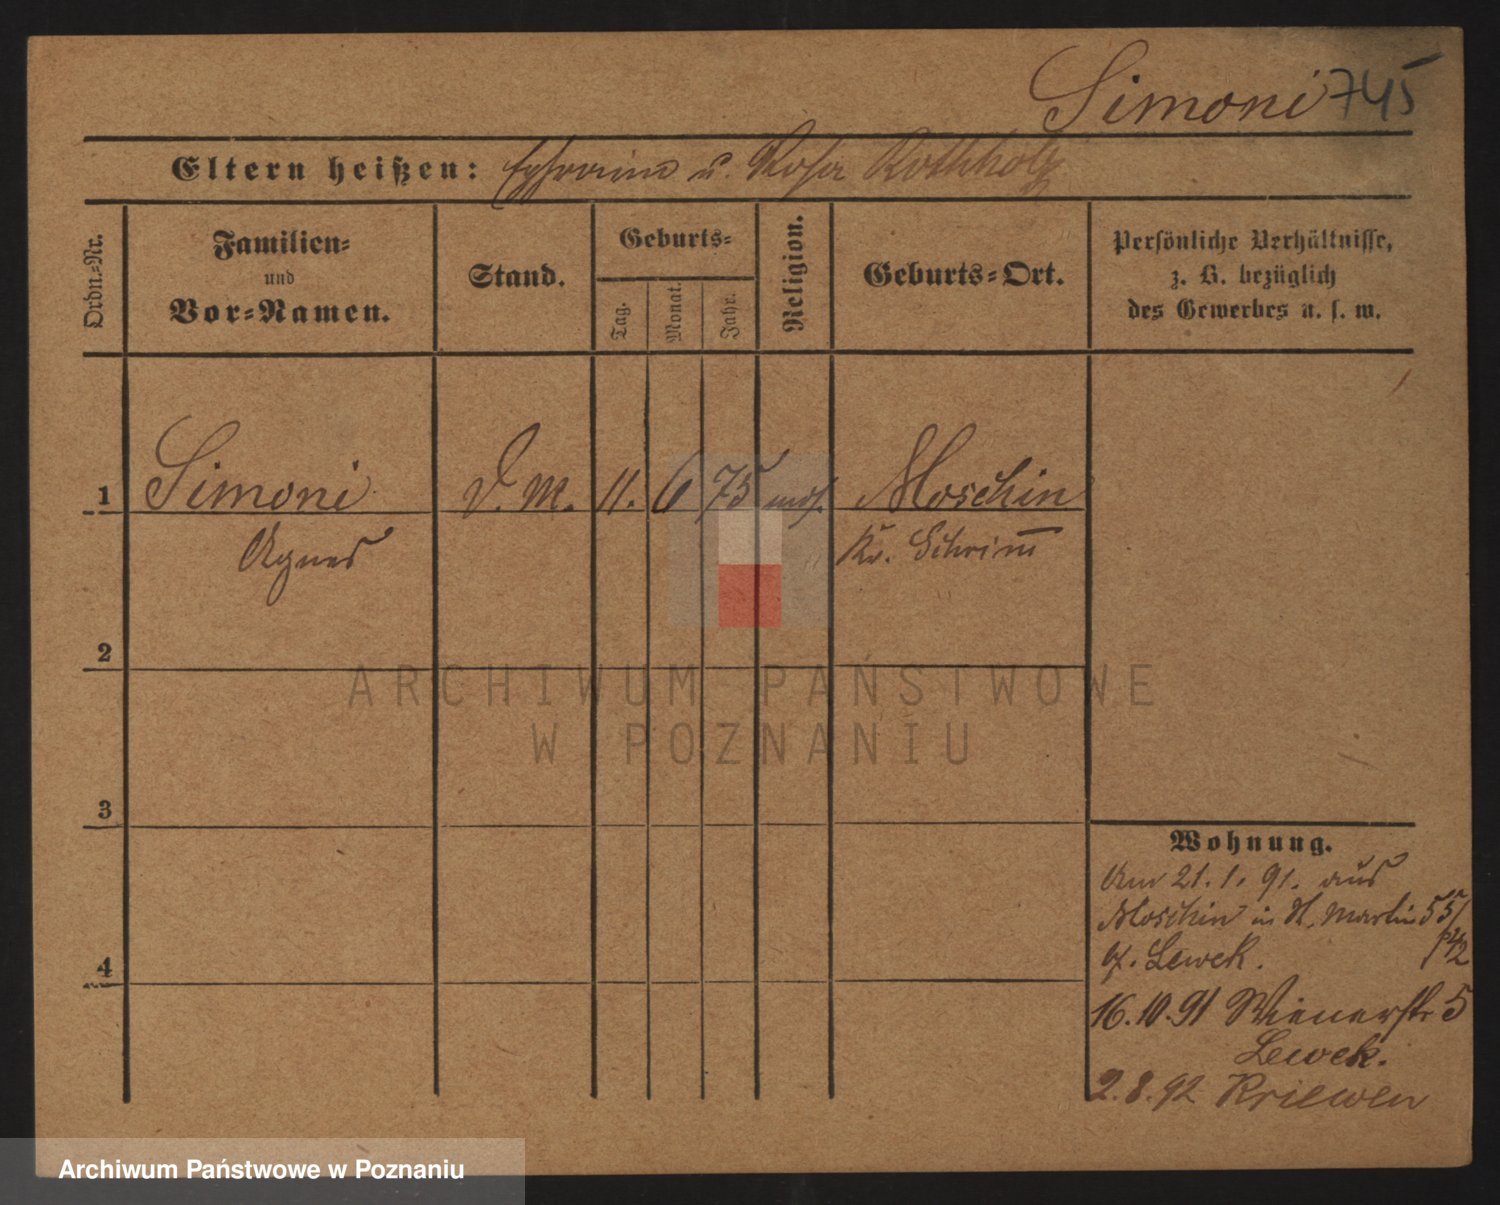 Simoni 745
Eltern heißen: Ephraim u. Rosa Rothholz
Ordn.-Nr.
Familien-
und
Vor-Namen.
Stand.
Geburts-
Tag.
Monat.
Jahr.
Religion.
Geburts-Ort.
Persönliche Verhältnisse,
z. B. bezüglich
des Gewerbes u. s. w.
1 Simoni D. M. 11. 6 75 mos. Moschin
Agnes Kr. Schrimm
2
3
4
Wohnung.
Am 21. 1. 91. aus
Moschin in St. Martin 55/
b. Lewek. 42
16.10.91 Wienerstr 5
Lewek.
2.8.92 Kriewen
ARCHIWUM PAŃSTWOWE
W POZNANIU
Archiwum Państwowe w Poznaniu